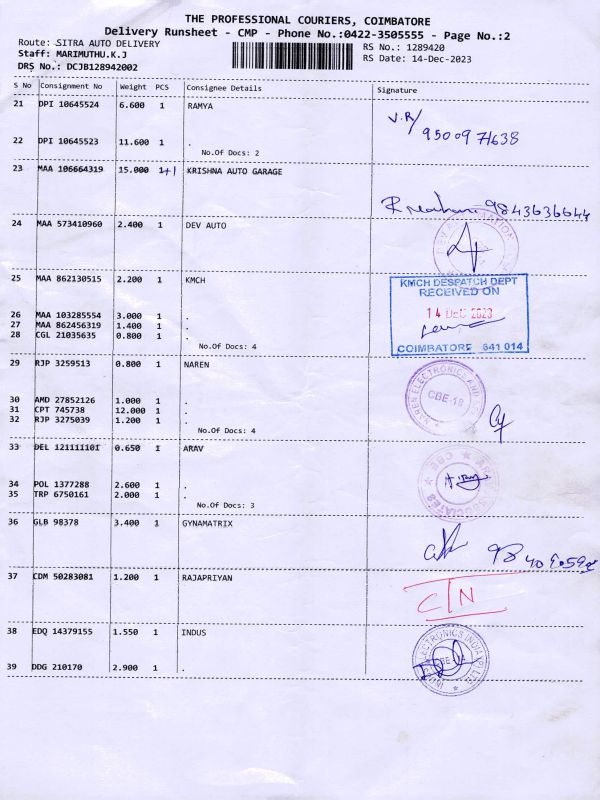 THE PROFESSIONAL COURIERS, COIMBATORE
Delivery Runsheet - CMP - Phone No.:0422-3505555 - Page No.:2
Route: SITRA AUTO DELIVERY
RS No.: 1289420
Staff: MARIMUTHU.K.J
RS Date: 14-Dec-2023
DRS No.: DCJB128942002
S No Consignment No Weight PCS Consignee Details Signature
21 DPI 10645524 6.600 1 RAMYA
V.R/
95009 71638
22 DPI 10645523 11.600 1 .
No.Of Docs: 2
23 MAA 106664319 15.000 1+1 KRISHNA AUTO GARAGE
9843636644
24 MAA 573410960 2.400 1 DEV AUTO
25 MAA 862130515 2.200 1 KMCH
KMCH DESPATCH DEPT
RECEIVED ON
14 DEC 2023
COIMBATORE 641 014
26 MAA 103285554 3.000 1 .
27 MAA 862456319 1.400 1 .
28 CGL 21035635 0.800 1 .
No.Of Docs: 4
29 RJP 3259513 0.800 1 NAREN
CBE-18
30 AMD 27852126 1.000 1 .
31 CPT 745738 12.000 1 .
32 RJP 3275039 1.200 1 .
No.Of Docs: 4
33 DEL 121111101 0.650 1 ARAV
34 POL 1377288 2.600 1 .
35 TRP 6750161 2.000 1 .
No.Of Docs: 3
36 GLB 98378 3.400 1 GYNAMATRIX
37 CDM 50283081 1.200 1 RAJAPRIYAN
C/N
38 EDQ 14379155 1.550 1 INDUS
39 DDG 210170 2.900 1 .